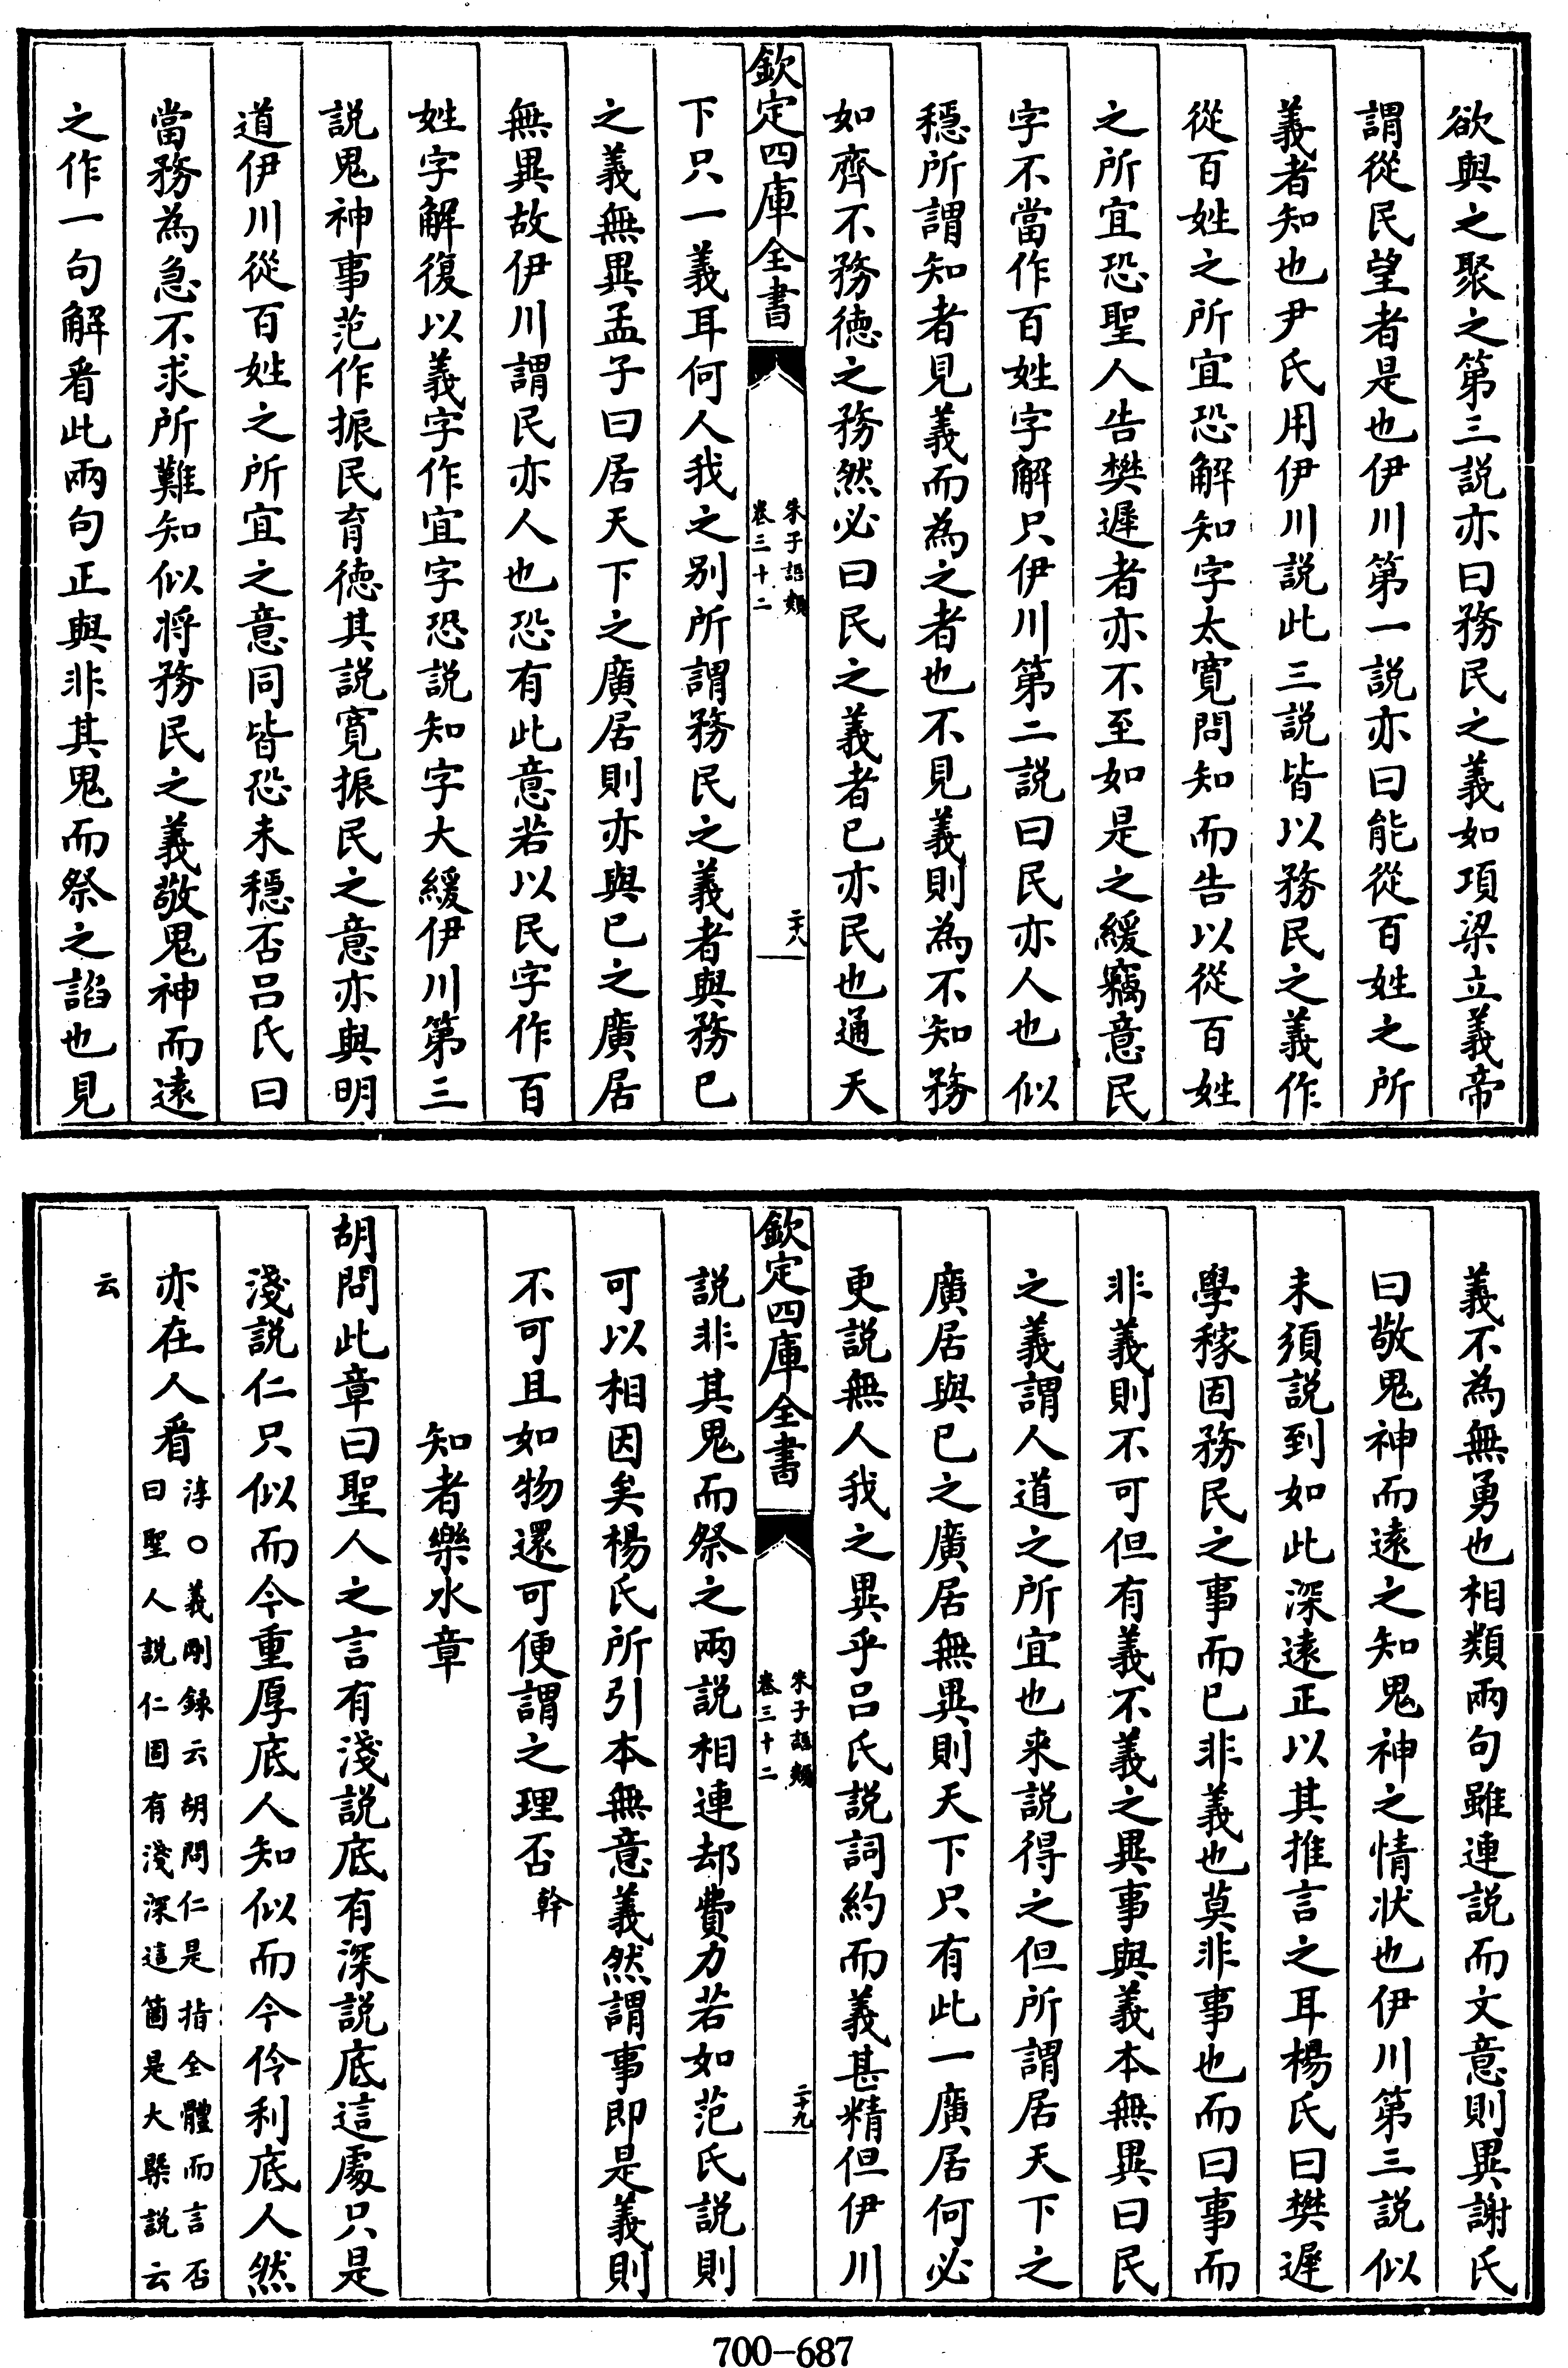 欲與之聚之第三説亦曰務民之義如項梁立義帝
謂從民望者是也伊川第一説亦曰能從百姓之所
義者知也尹氏用伊川説此三説皆以務民之義作
從百姓之所宜恐解知字太寛問知而告以從百姓
之所宜恐聖人告樊遲者亦不至如是之緩竊意民
字不當作百姓字解只伊川第二説曰民亦人也似
穩所謂知者見義而為之者也不見義則為不知務
如齊不務徳之務然必曰民之義者已亦民也通天
欽定四庫全書
朱子語類
卷三十二
二十八
下只一義耳何人我之别所謂務民之義者與務已
之義無異孟子曰居天下之廣居則亦與已之廣居
無異故伊川謂民亦人也恐有此意若以民字作百
姓字解復以義字作宜字恐説知字大緩伊川第三
説鬼神事范作振民育徳其説寛振民之意亦與明
道伊川從百姓之所宜之意同皆恐未穩否吕氏曰
當務為急不求所難知似将務民之義敬鬼神而逺
之作一句解看此兩句正與非其鬼而祭之諂也見
義不為無勇也相類兩句雖連説而文意則異謝氏
曰敬鬼神而逺之知鬼神之情状也伊川第三説似
未須説到如此深逺正以其推言之耳楊氏曰樊遲
學稼固務民之事而已非義也莫非事也而曰事而
非義則不可但有義不義之異事與義本無異曰民
之義謂人道之所宜也来説得之但所謂居天下之
廣居與已之廣居無異則天下只有此一廣居何必
更説無人我之異乎吕氏説詞約而義甚精但伊川
欽定四庫全書
朱子語類
卷三十二
二十九
説非其鬼而祭之兩説相連却費力若如范氏説則
可以相因矣楊氏所引本無意義然謂事即是義則
不可且如物還可便謂之理否幹
知者樂水章
胡問此章曰聖人之言有淺説底有深説底這處只是
淺説仁只似而今重厚底人知似而今伶利底人然
亦在人看淳〇義剛録云胡問仁是指全體而言否
曰聖人説仁固有淺深這箇是大槩説云
云
700-687